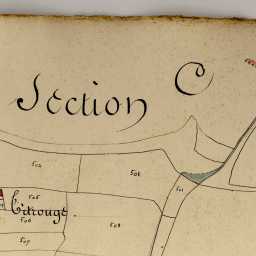 Section C
502
506
501
505
Citrouge
506
508
507